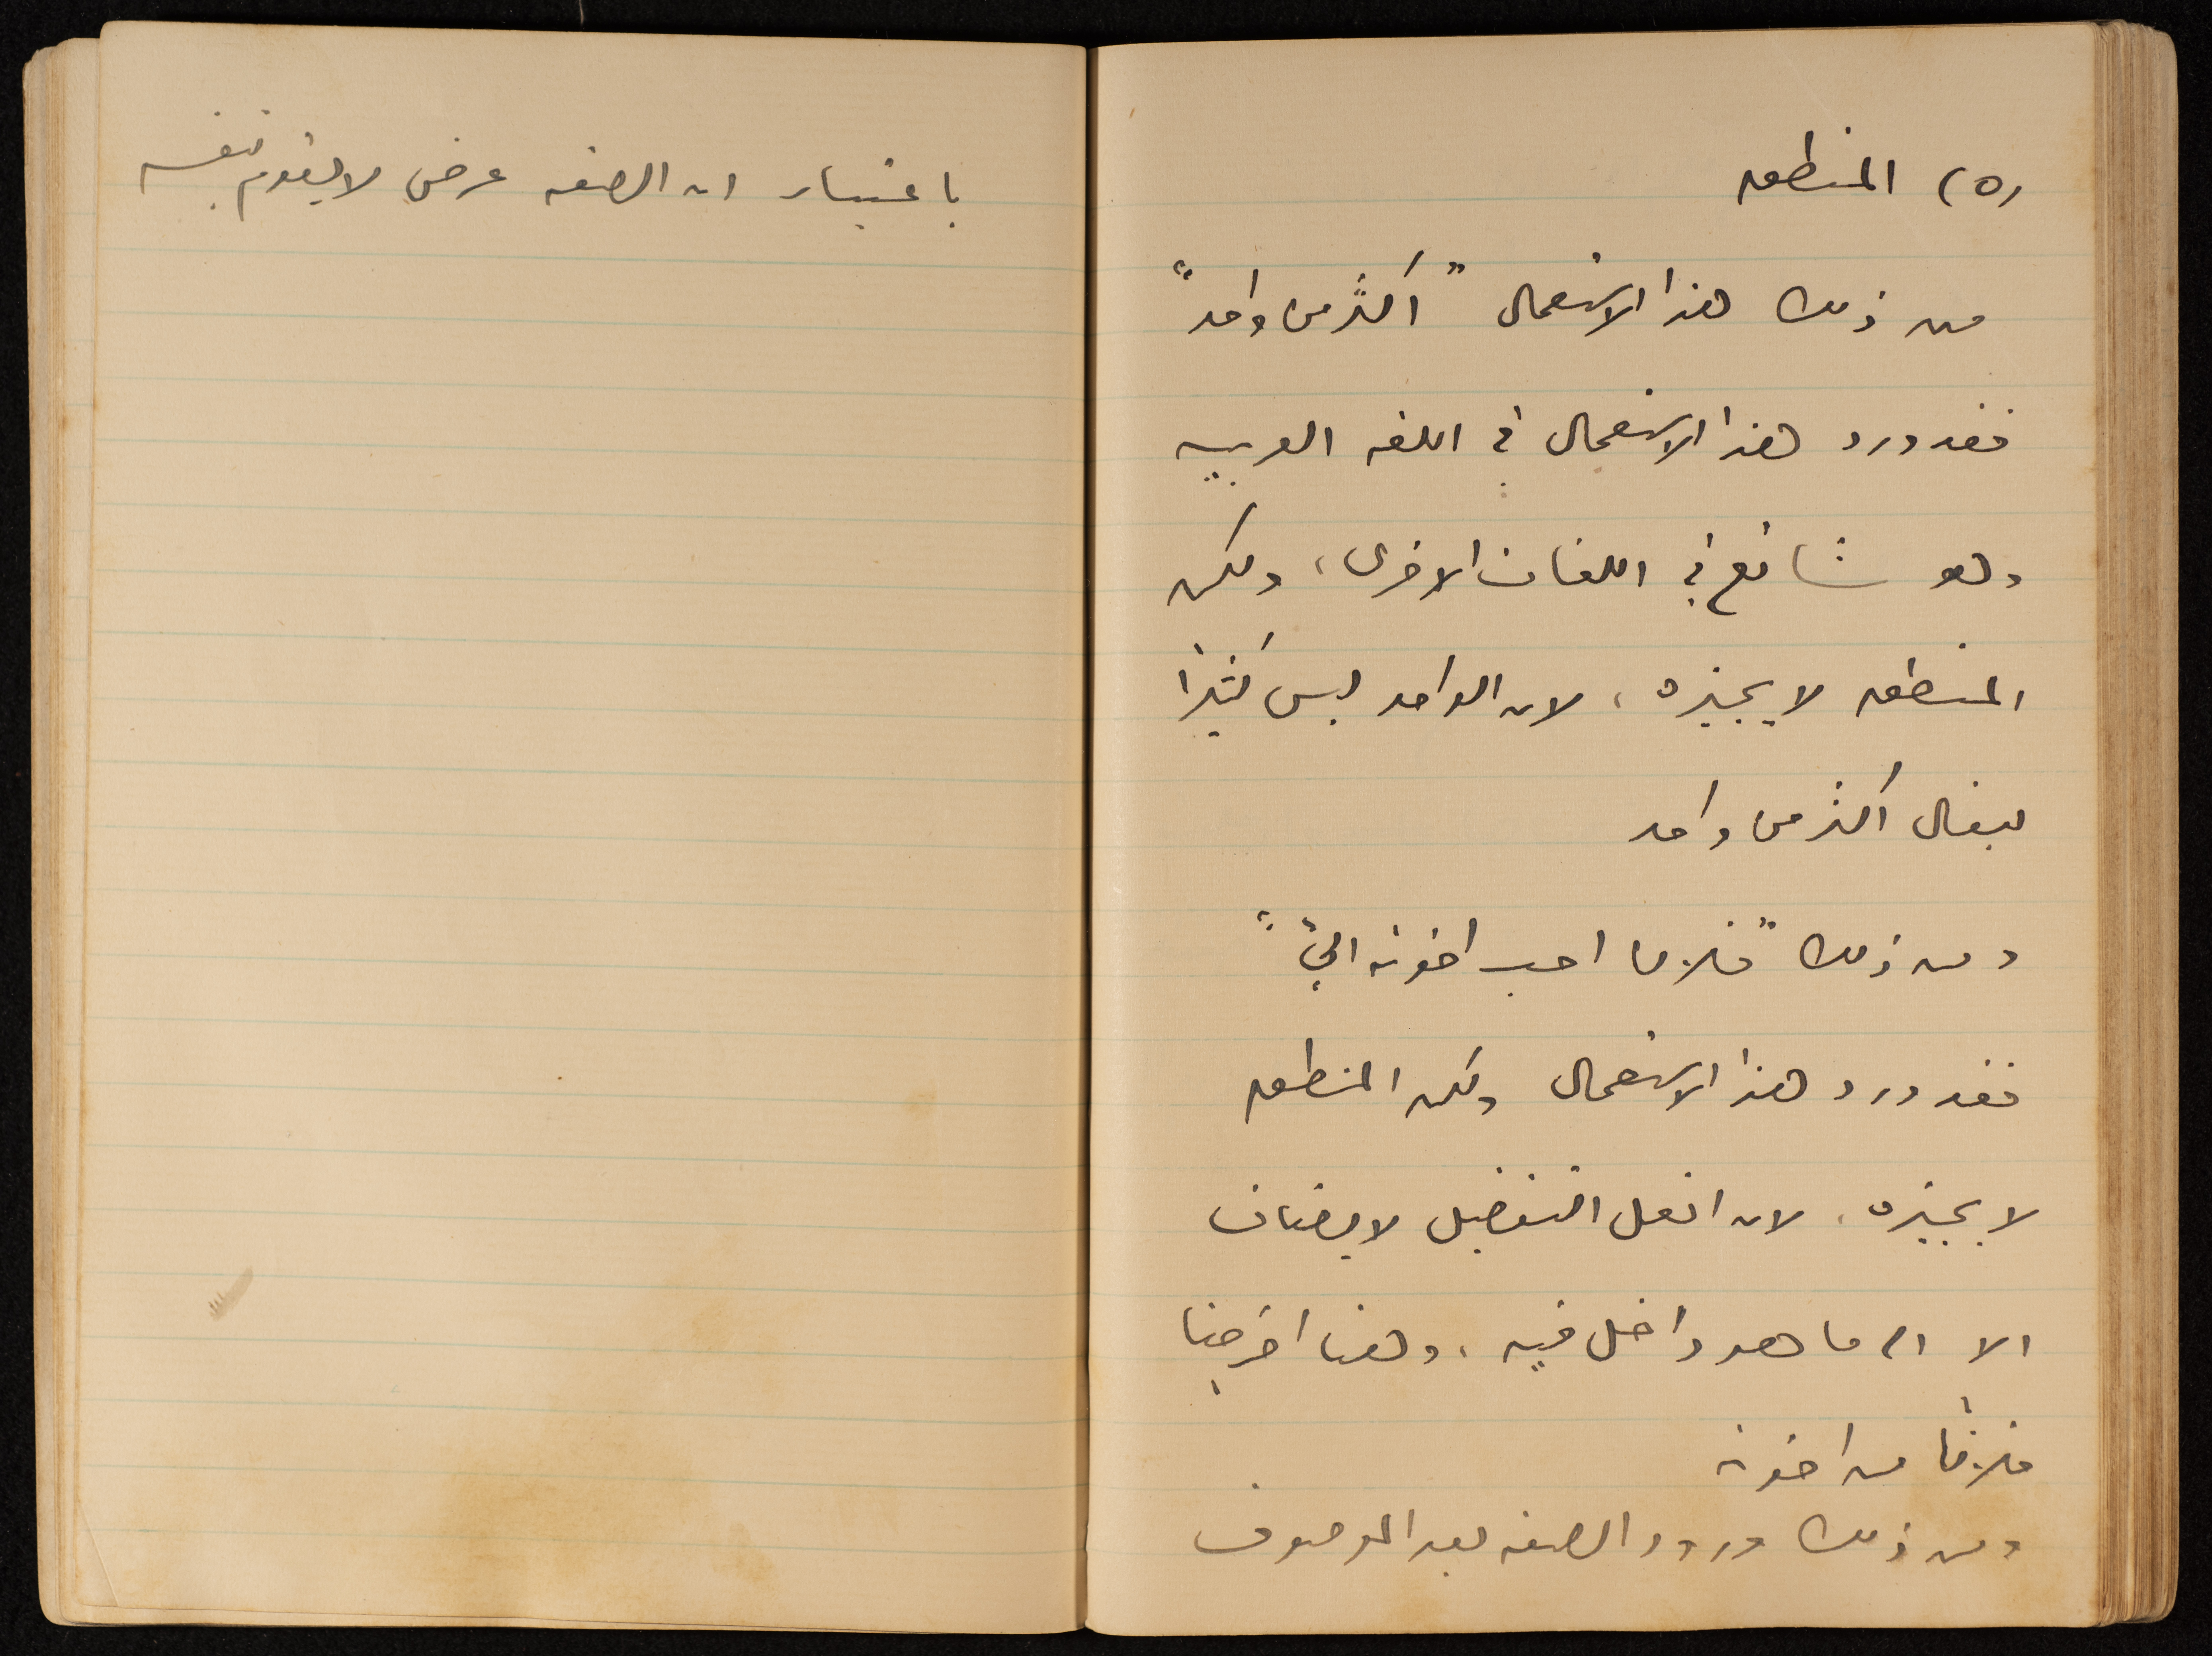 (٥) المنطق
من ذلك هذا الاستعمال "أكثر من واحد"
فقد ورد هذا الاستعمال في اللغه العربيه
وهو شائع في اللغات الاخرى، ولكن
المنطق لا يجيزه، لان الواحد ليس كثيرا
ليقال أكثر من واحد
ومن ذلك "فلان احب اخوته اليّ"
فقد ورد هذا الاستعمال ولكن المنطق
لا يجيزه، لان افعل التفضيل لا يضاف
الا الى ما هو داخل فيه، وهنا اخرجنا
فلانا من اخوته
ومن ذلك ورود الصفه بعد الموصوف
باعتبار ان الصفه عرض لا يقوم بنفسه